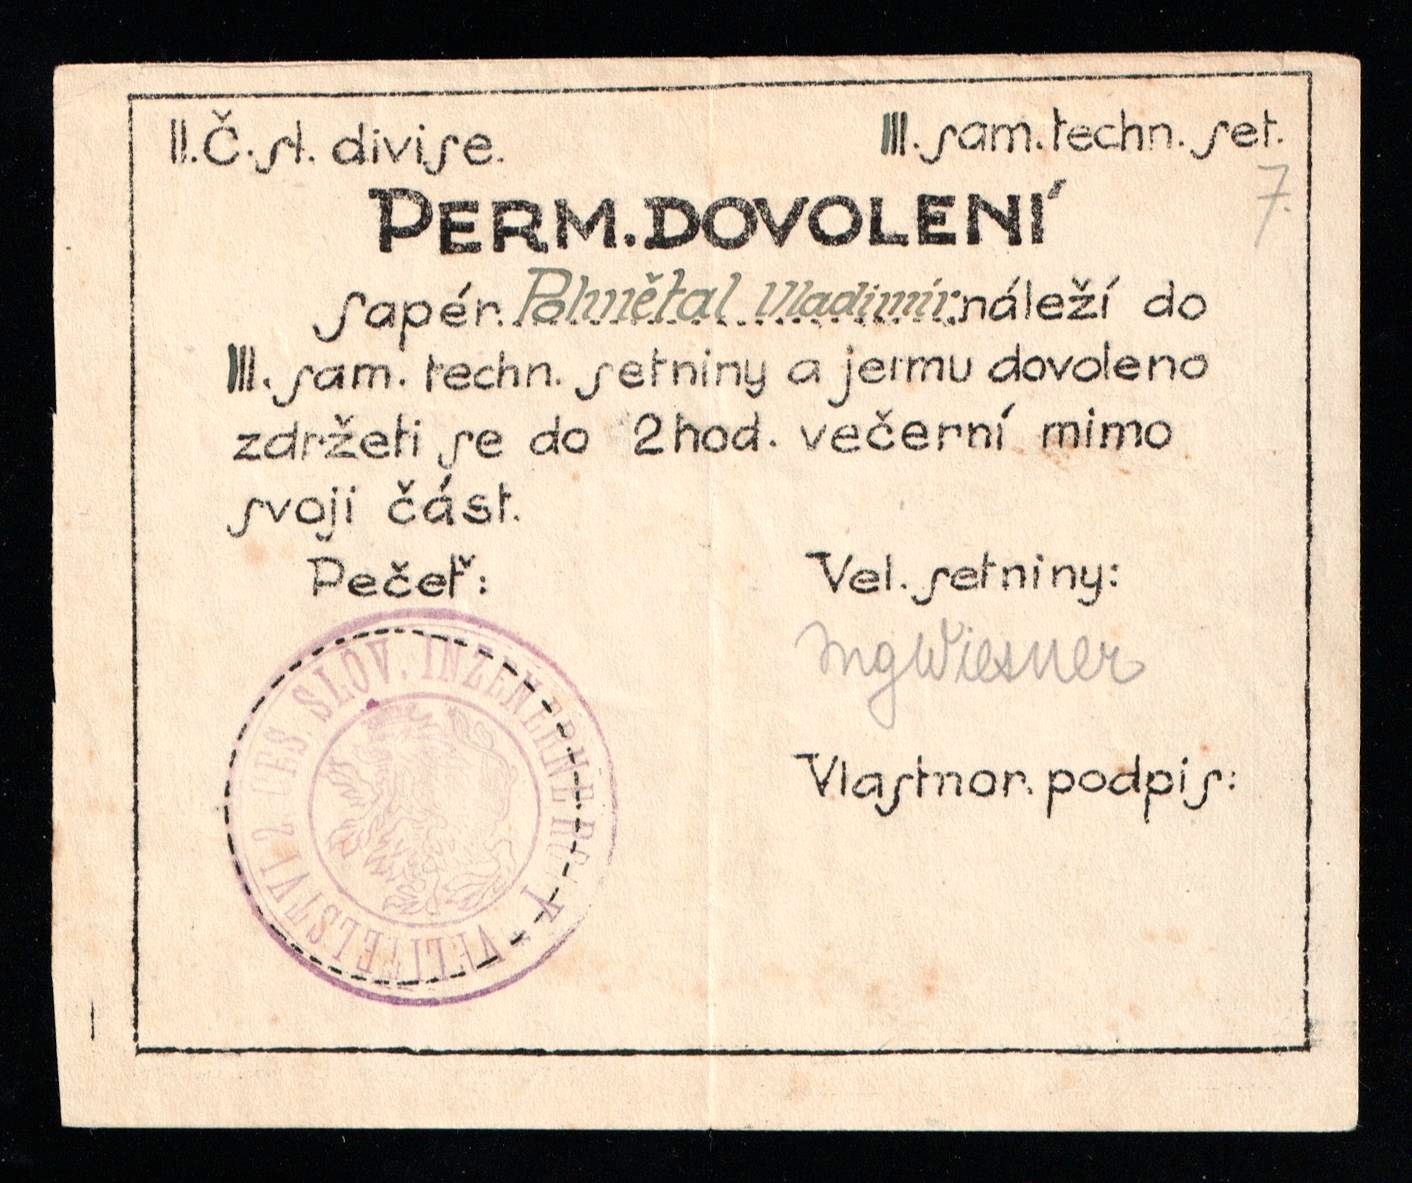 II. Č. sl. divise.
III. sam. techn. set.
7.
PERM. DOVOLENÍ
sapér. Polmětal Vladimír. náleží do
III. sam. techn. setniny a jemu dovoleno
zdržeti se do 2 hod. večerní mimo
svoji část.
Pečeť:
Vel. setniny:
Ing Wiesner
Vlastnor. podpis:
VELITELSTVÍ 2 ČES. SLOV. INŽENÝRNÉHO